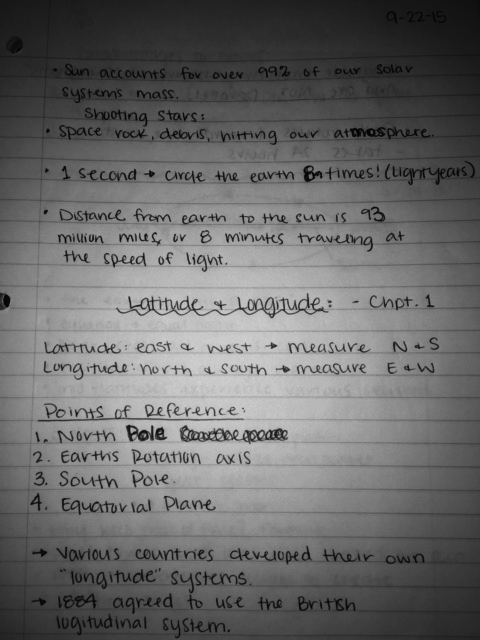 9-22-15
• Sun accounts for over 99% of our solar
systems mass.
Shooting Stars:
• Space rock, debris, hitting our atmosphere.
• 1 second → circle the earth 8 times! (Lightyears)
• Distance from earth to the sun is 93
million miles, or 8 minutes traveling at
the speed of light.
Latitude & Longitude: - Chpt. 1
Latitude: east & west → measure N & S
Longitude: north & south → measure E & W
Points of Reference:
1. North Pole
2. Earths Rotation axis
3. South Pole.
4. Equatorial Plane
→ Various countries developed their own
"longitude" systems.
→ 1884 agreed to use the British
logitudinal system.